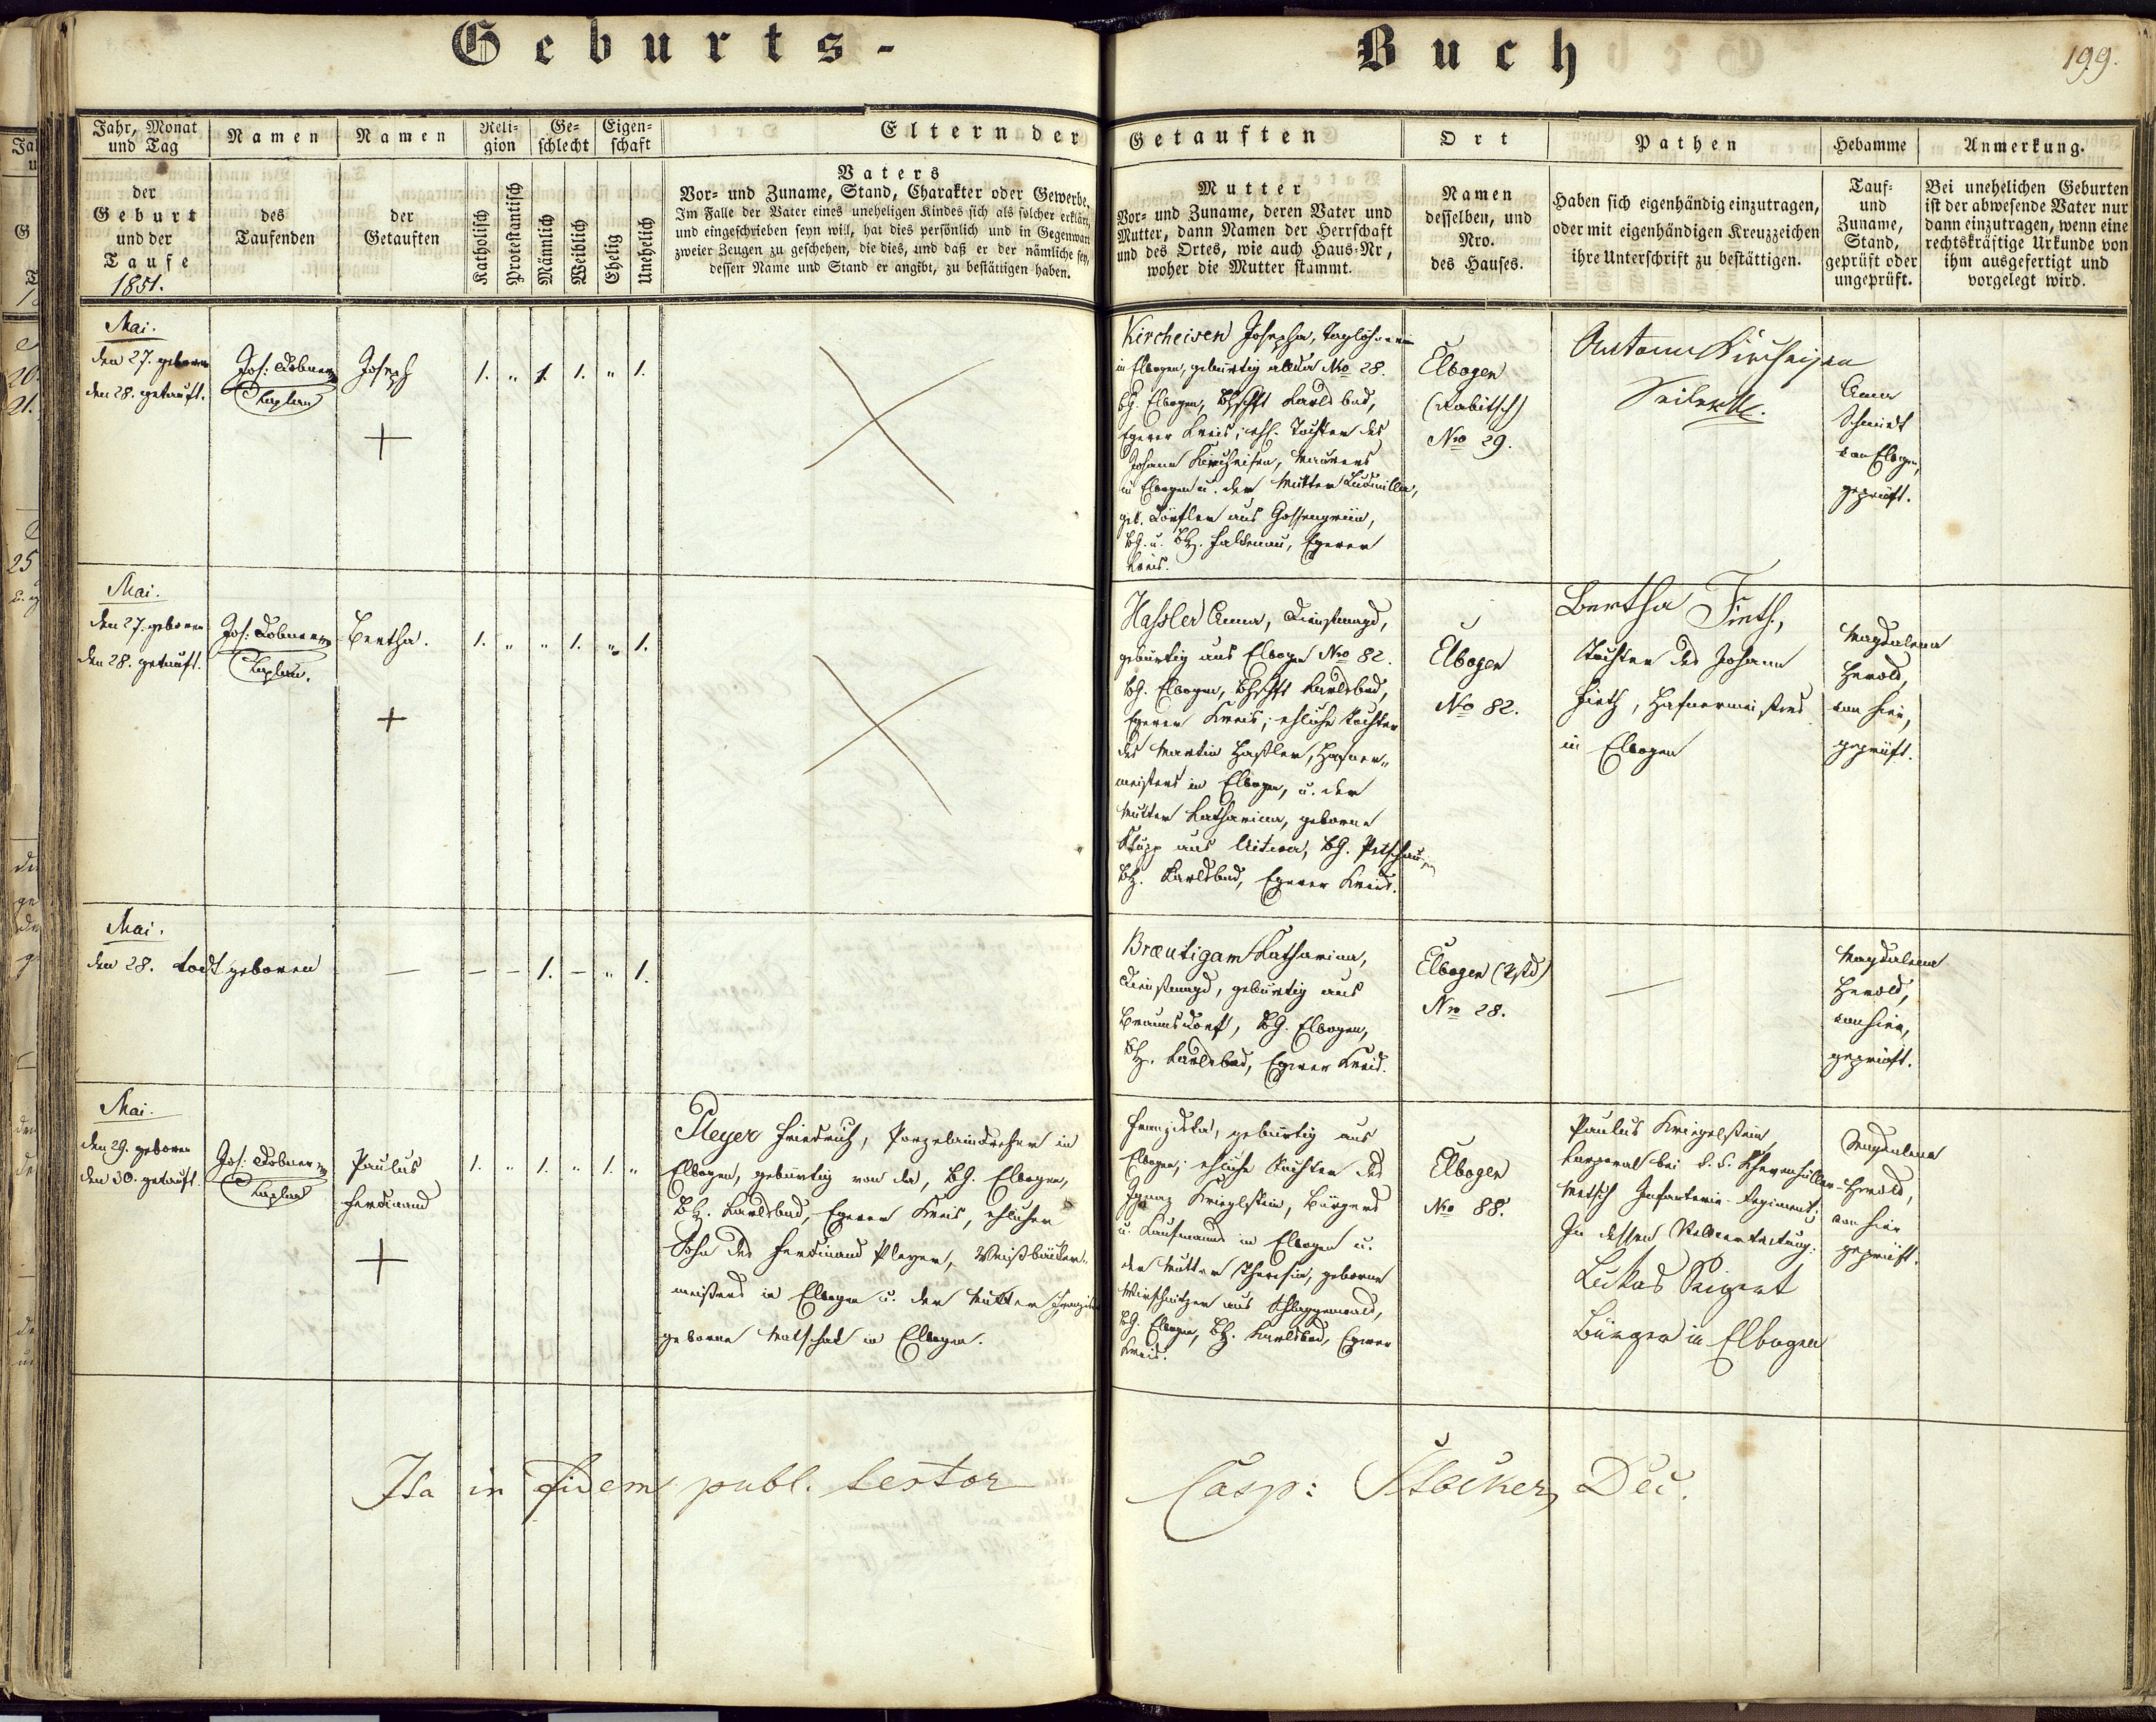 Geburts-
Buch
199.
Jahr, Monat und Tag
der
Geburt
und der
Taufe
1851.
Namen
des
Taufenden
Namen
der
Getauften
Reli-
gion
Katholisch
Protestantisch
Ge-
schlecht
Männlich
Weiblich
Eigen-
schaft
Ehelig
Unehelich
Eltern der
Getauften
Vaters
Vor- und Zuname, Stand, Charakter oder Gewerbe.
Im Falle der Vater eines uneheligen Kindes sich als solcher erklärt,
und eingeschrieben seyn will, hat dies persönlich und in Gegenwart
zweier Zeugen zu geschehen, die dies, und daß er der nämliche sey,
dessen Name und Stand er angibt, zu bestättigen haben.
Mutter
Vor- und Zuname, deren Vater und
Mutter, dann Namen der Herrschaft
und des Ortes, wie auch Haus-Nr,
woher die Mutter stammt.
Ort
Namen
desselben, und
Nro.
des Hauses.
Pathen
Haben sich eigenhändig einzutragen,
oder mit eigenhändigen Kreuzzeichen
ihre Unterschrift zu bestättigen.
Hebamme
Tauf-
und
Zuname,
Stand,
geprüft oder
ungeprüft.
Anmerkung.
Bei unehelichen Geburten
ist der abwesende Vater nur
dann einzutragen, wenn eine
rechtskräftige Urkunde von
ihm ausgefertigt und
vorgelegt wird.
Mai.
den 27. geboren
den 28. getauft.
Jos: Lobner
Kaplan
Joseph
1. " 1. 1. " 1.
Kircheisen Josepha, Taglöhnerin
in Elbogen, gebürtig allda Nro 28.
BG. Elbogen, Karlsbad,
Egerer Kreis; ehl. Tochter des
Johann Kircheisen, Maurers
in Elbogen u. der Mutter Ludmilla,
geb. aus Gossengrün,
BG. u. BH. Falkenau, Egerer
Kreis.
Elbogen
(Rabitsch)
Nro 29.
Anton Kircheisen
Anna
Schmidt
von Elbogen,
geprüft.
Mai.
den 27. geboren
den 28. getauft.
Jos: Lobner
Kaplan.
Bertha.
1. " " 1. " 1.
Hassler Anna, Dienstmagd,
gebürtig aus Elbogen Nro 82.
BG. Elbogen, Karlsbad,
Egerer Kreis; ehliche Tochter
des Martin Haßler, Hafner-
meisters in Elbogen, u. der
Mutter Katharina, geborne
aus BG. Petschau,
BH. Karlsbad, Egerer Kreis.
Elbogen
No 82.
Bertha Fieth,
Tochter des Johann
Fieth, Hafnermeisters
in Elbogen
Magdalena
Herold,
von hier,
geprüft.
Mai.
den 28. todt geboren
— — — 1. — " 1.
Braeutigam Katharina,
Dienstmagd, gebürtig aus
Braunsdorf, BG. Elbogen,
BH. Karlsbad, Egerer Kreis.
Elbogen (Vstd)
Nro 28.
—
Magdalena
Herold,
von hier,
geprüft.
Mai.
den 29. geboren
den 30. getauft.
Jos: Lobner
Kaplan
Paulus
Ferdinand
1. " 1. " 1. "
Pleyer Friedrich, Porzelaindreher in
Elbogen, gebürtig von da, BG. Elbogen,
BH. Karlsbad, Egerer Kreis, ehlicher
Sohn des Ferdinand Pleyer, Weißbäcker-
meisters in Elbogen u. der Mutter
geborne in Elbogen.
Franziska, gebürtig aus
Elbogen; ehliche Tochter des
Ignaz Krieglstein, Bürgers
u. Kaufmanns in Elbogen u.
der Mutter Theresia, geborne
aus Schlaggenwald,
BG. Elbogen, BH. Karlsbad, Egerer
Kreis.
Elbogen
Nro 88.
Paulus Kriegelstein,
Korporal bei k. k. Khevenhüller-
Metsch Infanterie-Regiment;
In dessen Stellvertretung:
Lukas Seigert
Bürger in Elbogen
Magdalena
Herold,
von hier
geprüft.
Ita in fidem publ. testor
Casp: Stöcker, Dec.